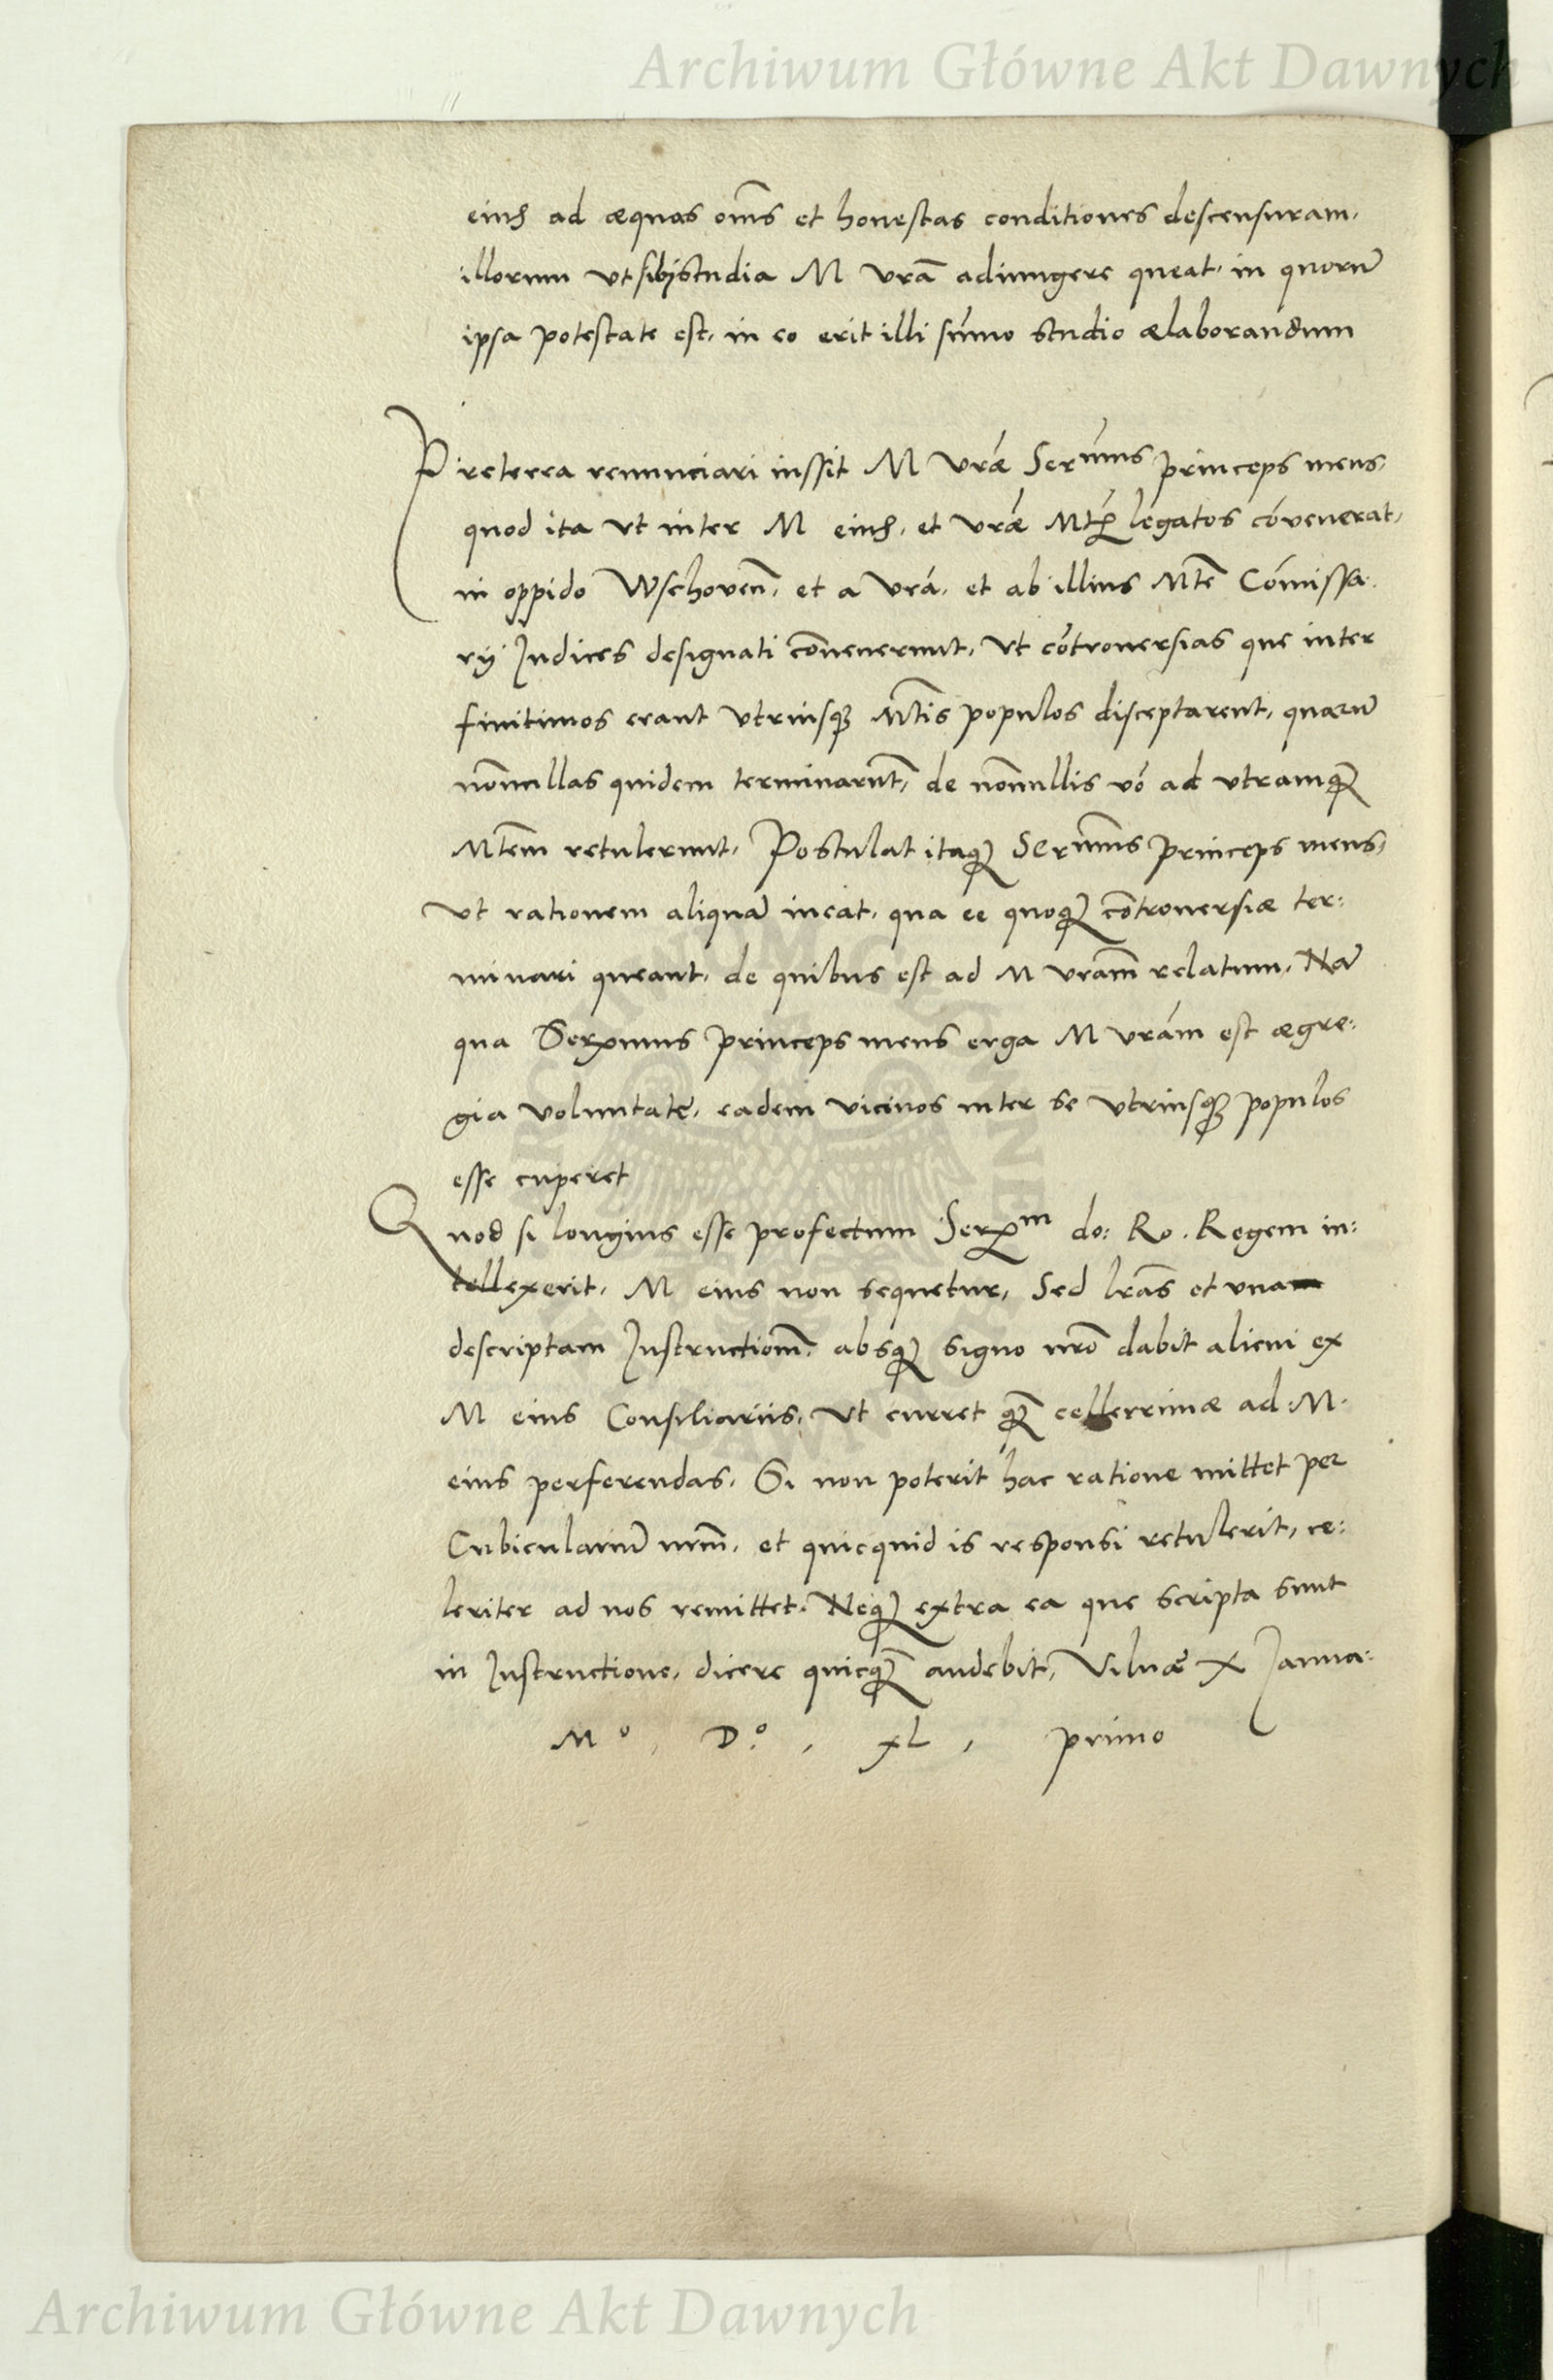 Archiwum Główne Akt Dawnych
eiusq̃ ad æquas om̃s et honestas conditiones descensuram,
illorum vt sibi studia M vrã adiungere queat, in quorũ
ipsa potestate est, in eo erit illi sũmo studio ælaborandum
Preterea renunciari iussit M vræ̃ Serñmus princeps meus,
quod ita vt inter M eiusq̃, et vræ̃ Mt̃ legatos cõvenerat,
in oppido Wschoveñ, et a vrã, et ab illius Mtẽ Cõmissa.
rÿ Iudices designati cõvenerunt, vt cõtrouersias que inter
finitimos erant vtriusqȝ Mt̃is populos disceptarent, quarũ
nõnullas quidem terminarũt, de nõnullis võ ad vtramqȝ
Mt̃em retulerunt, Postulat itaqȝ Serñmus princeps meus,
vt rationem aliquã ineat, qua ee quoqȝ cõtrouersiæ ter:
minari queant, de quibus est ad M vram̃ relatum, Nã
qua Serxmus princeps meus erga M vrãm est ægre:
gia voluntate, eadem vicinos inter se vtriusqȝ populos
esse cuperet
Quod si longius esse profectum Serx^m do: Ro. Regem in:
tellexerit, M eius non sequetur, Sed lrãs et vna
descriptam Instructionẽ, absqȝ signo nrõ dabit alicui ex
M eius Consiliariis, vt curret qȝ̃ cellerrimæ ad M.
eius perferendas. Si non poterit hac ratione mittet per
Cubiculariũ nrm̃, et quicquid is responsi retulerit, ce:
leriter ad nos remittet. Neqȝ extra ea que scripta sunt
in Instructione, dicere quicqȝ̃ audebit, Vilnæ X Janua:
M°, D°., xL, primo
Archiwum Główne Akt Dawnych